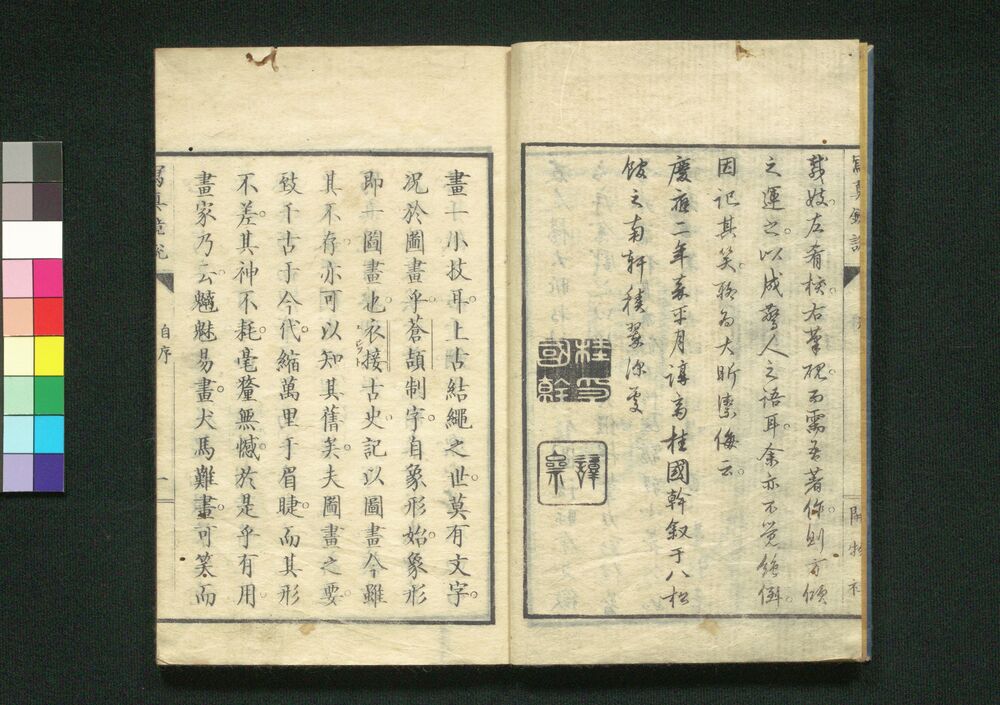 寫真鏡
開物社
載妓左肴核右筆硯而需吾著作則可傾
之運之以成驚人之語耳余亦不覚絶倒
因記其笑為大
慶應二年嘉平月桂國幹叙于八松
館之南軒積翠深處
桂氏國幹
畫一小技耳上古結繩之世莫有文字
况於圖畫乎蒼頡制字自象形始象形
即一圖畫也衣接古史記以圖畫今雖
其不存亦可以知其舊矣夫圖畫之要
致千古于今代縮萬里于眉睫而其形
不差其神不耗毫釐無憾於是乎有用
畫家乃云魑魅易畫犬馬難畫可笑而
寫真鏡說
自序
一